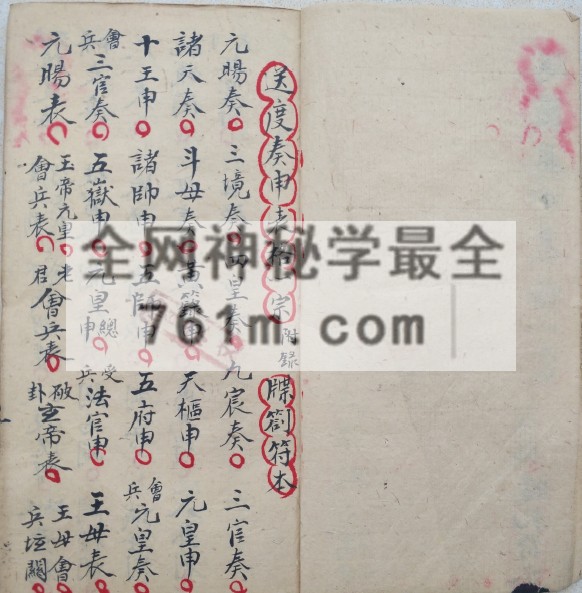 送度奏申表拾宗 附錄 牒劄符本
元暘奏 三境奏 四皇奏 九宸奏 三官奏
諸天奏 斗母奏 黃籙 天樞申 元皇申
十王申 諸帥申 五師申 五府申 會兵元皇奏
會兵三官奏 五嶽申 元皇總申 受兵法官申 王母表
元暘表 玉帝元皇會兵表 老君會兵表 破卦玄帝表 王母會兵垣關
全网神秘学最全
761m.com